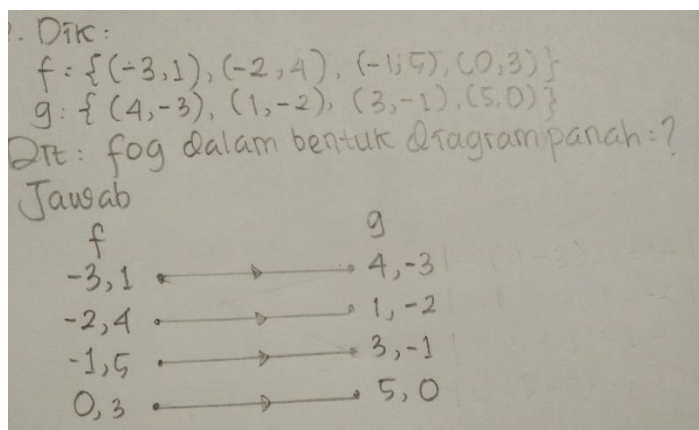 . Dik:
f = {(-3,1), (-2,4), (-1,5), (0,3)}
g : { (4,-3), (1,-2), (3,-1), (5,0)}
Dit : fog dalam bentuk diagram panah = ?
Jawab
f g
-3,1 4,-3
-2,4 1,-2
-1,5 3,-1
0,3 5,0